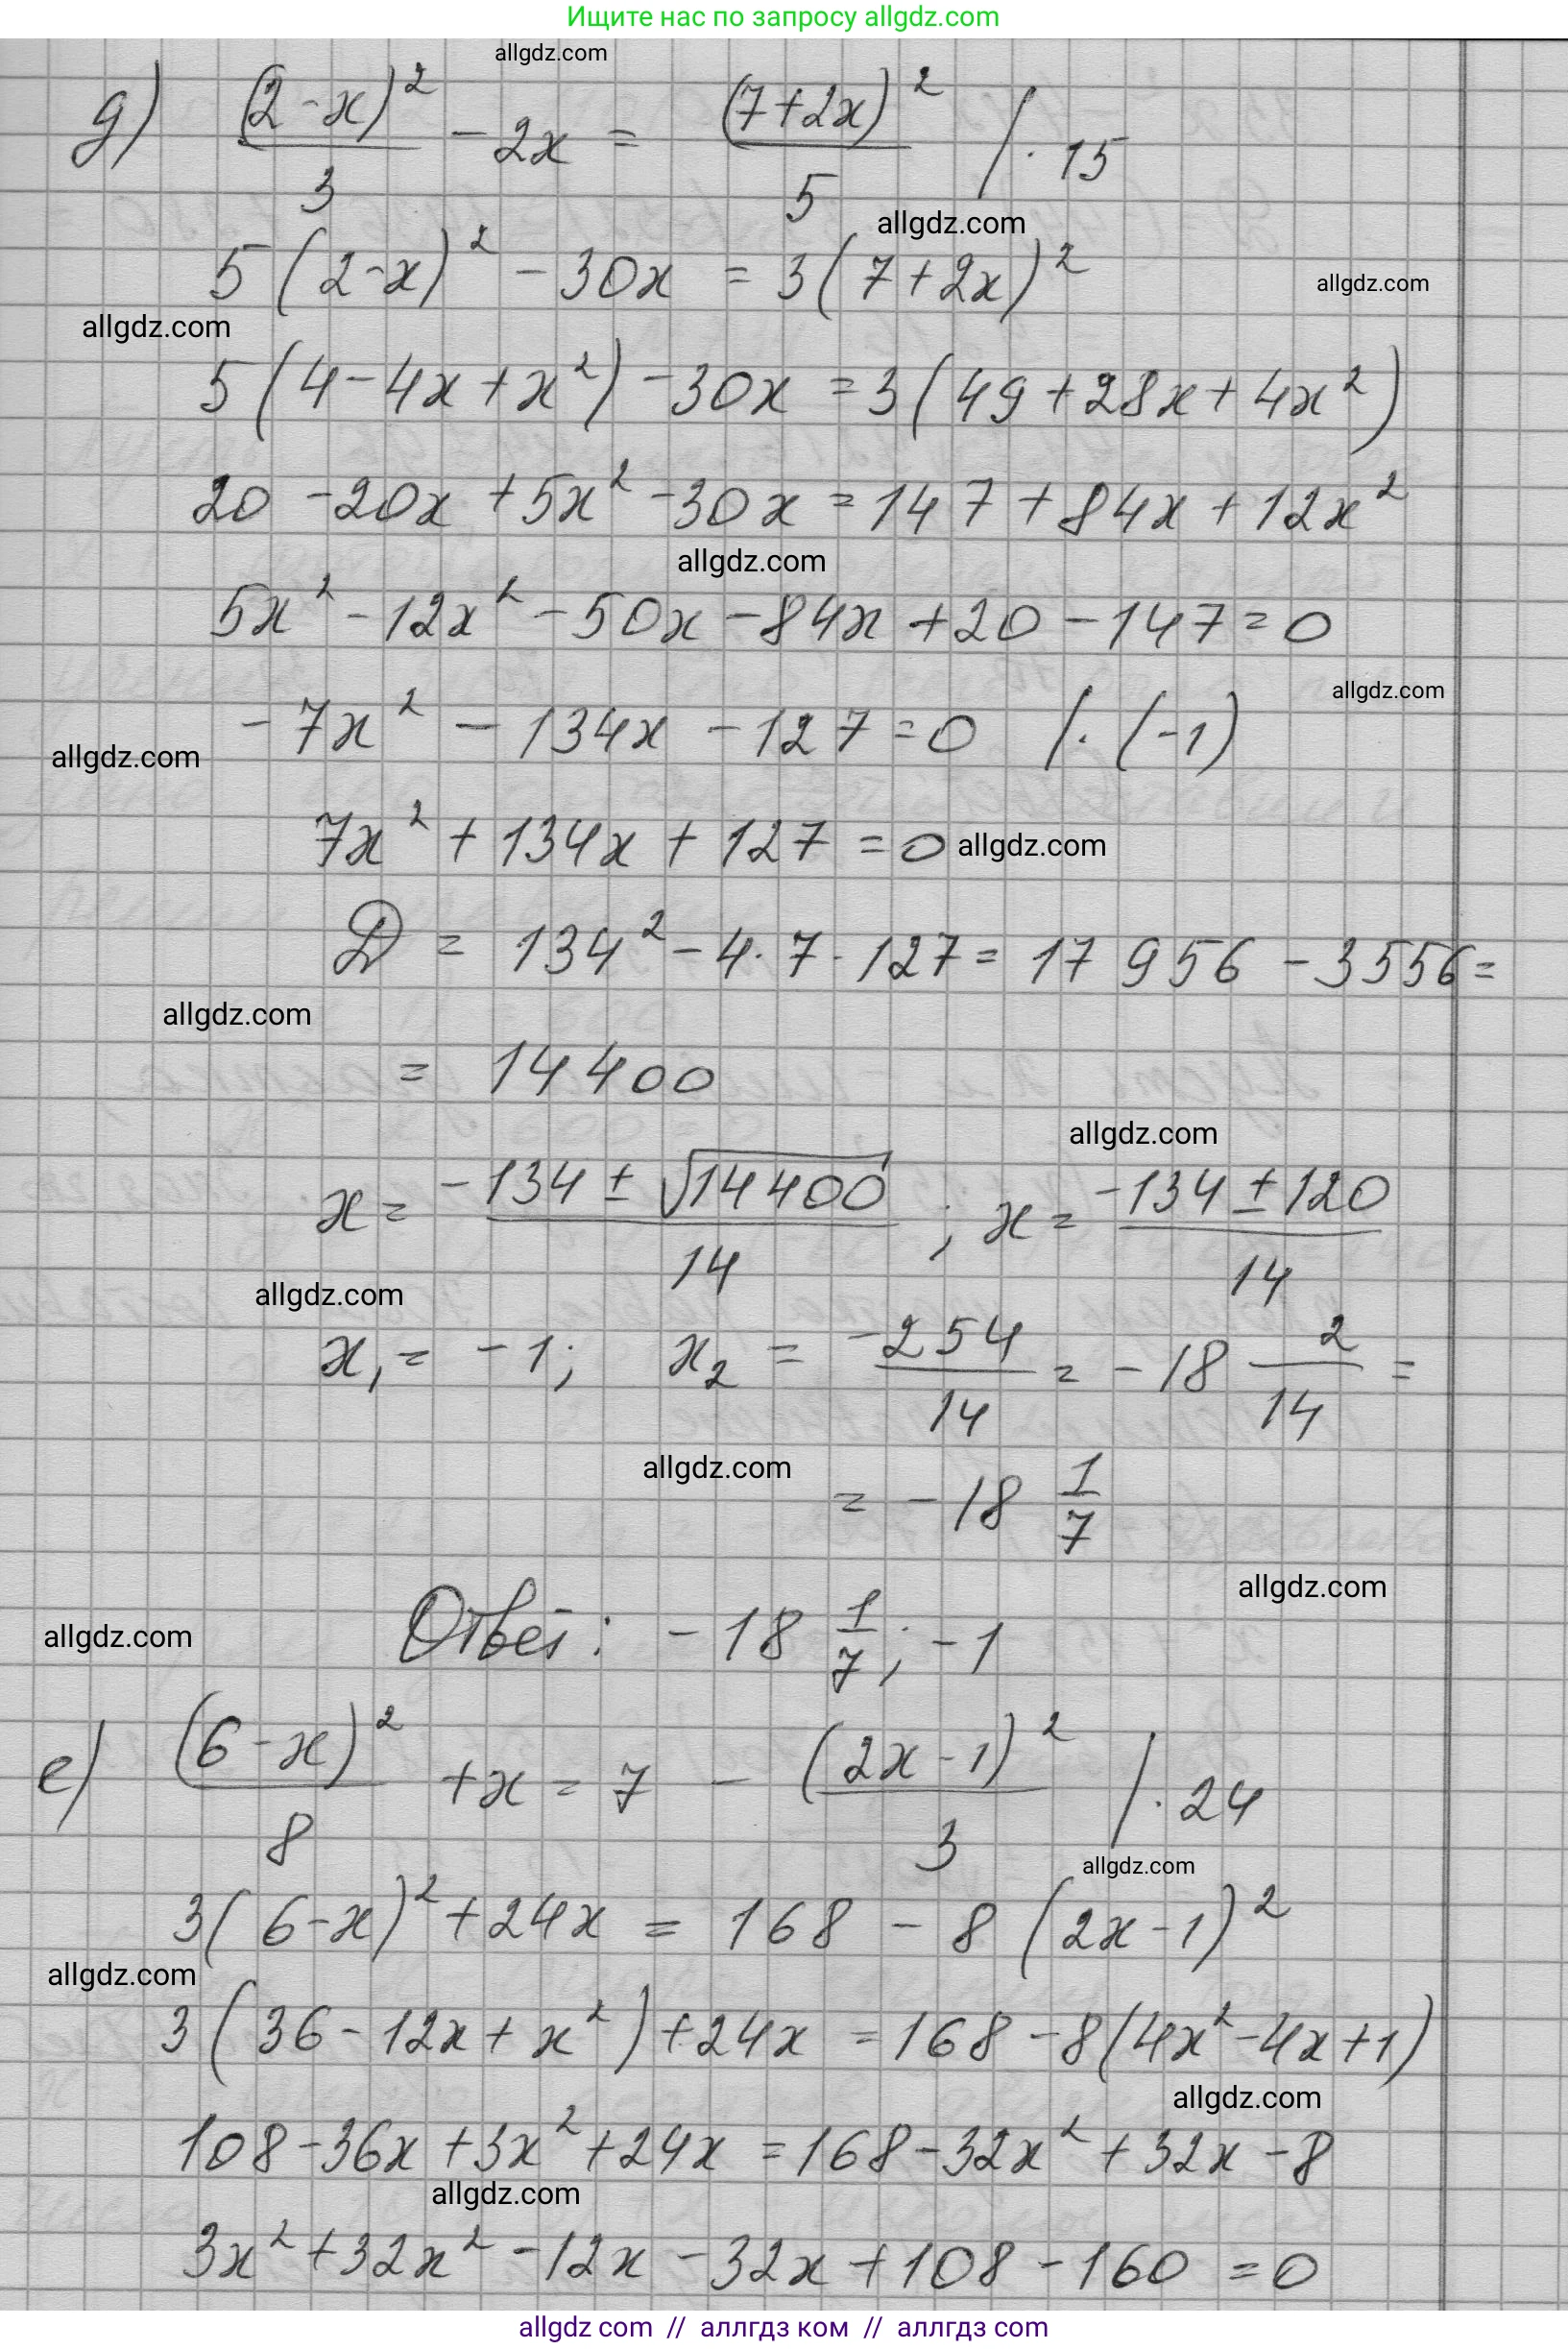 Ищите нас по запросу allgdz.com
allgdz.com
д) (2-x)²/3 - 2x = (7+2x)²/5 /· 15
allgdz.com
5(2-x)² - 30x = 3(7+2x)²
allgdz.com
allgdz.com
5(4-4x+x²) - 30x = 3(49+28x+4x²)
20 - 20x + 5x² - 30x = 147 + 84x + 12x²
allgdz.com
5x² - 12x² - 50x - 84x + 20 - 147 = 0
allgdz.com
-7x² - 134x - 127 = 0 /· (-1)
allgdz.com
7x² + 134x + 127 = 0
allgdz.com
D = 134² - 4 · 7 · 127 = 17 956 - 3556 =
allgdz.com
= 14 400
allgdz.com
x = (-134 ± √14400)/14 ; x = (-134 ± 120)/14
allgdz.com
x₁ = -1; x₂ = -254/14 = -18 2/14 =
allgdz.com
= -18 1/7
allgdz.com
Ответ: -18 1/7; -1
allgdz.com
е) (6-x)²/8 + x = 7 - (2x-1)²/3 /· 24
allgdz.com
3(6-x)² + 24x = 168 - 8(2x-1)²
allgdz.com
3(36-12x+x²) + 24x = 168 - 8(4x²-4x+1)
allgdz.com
108 - 36x + 3x² + 24x = 168 - 32x² + 32x - 8
allgdz.com
3x² + 32x² - 12x - 32x + 108 - 160 = 0
allgdz com // аллгдз ком // аллгдз com